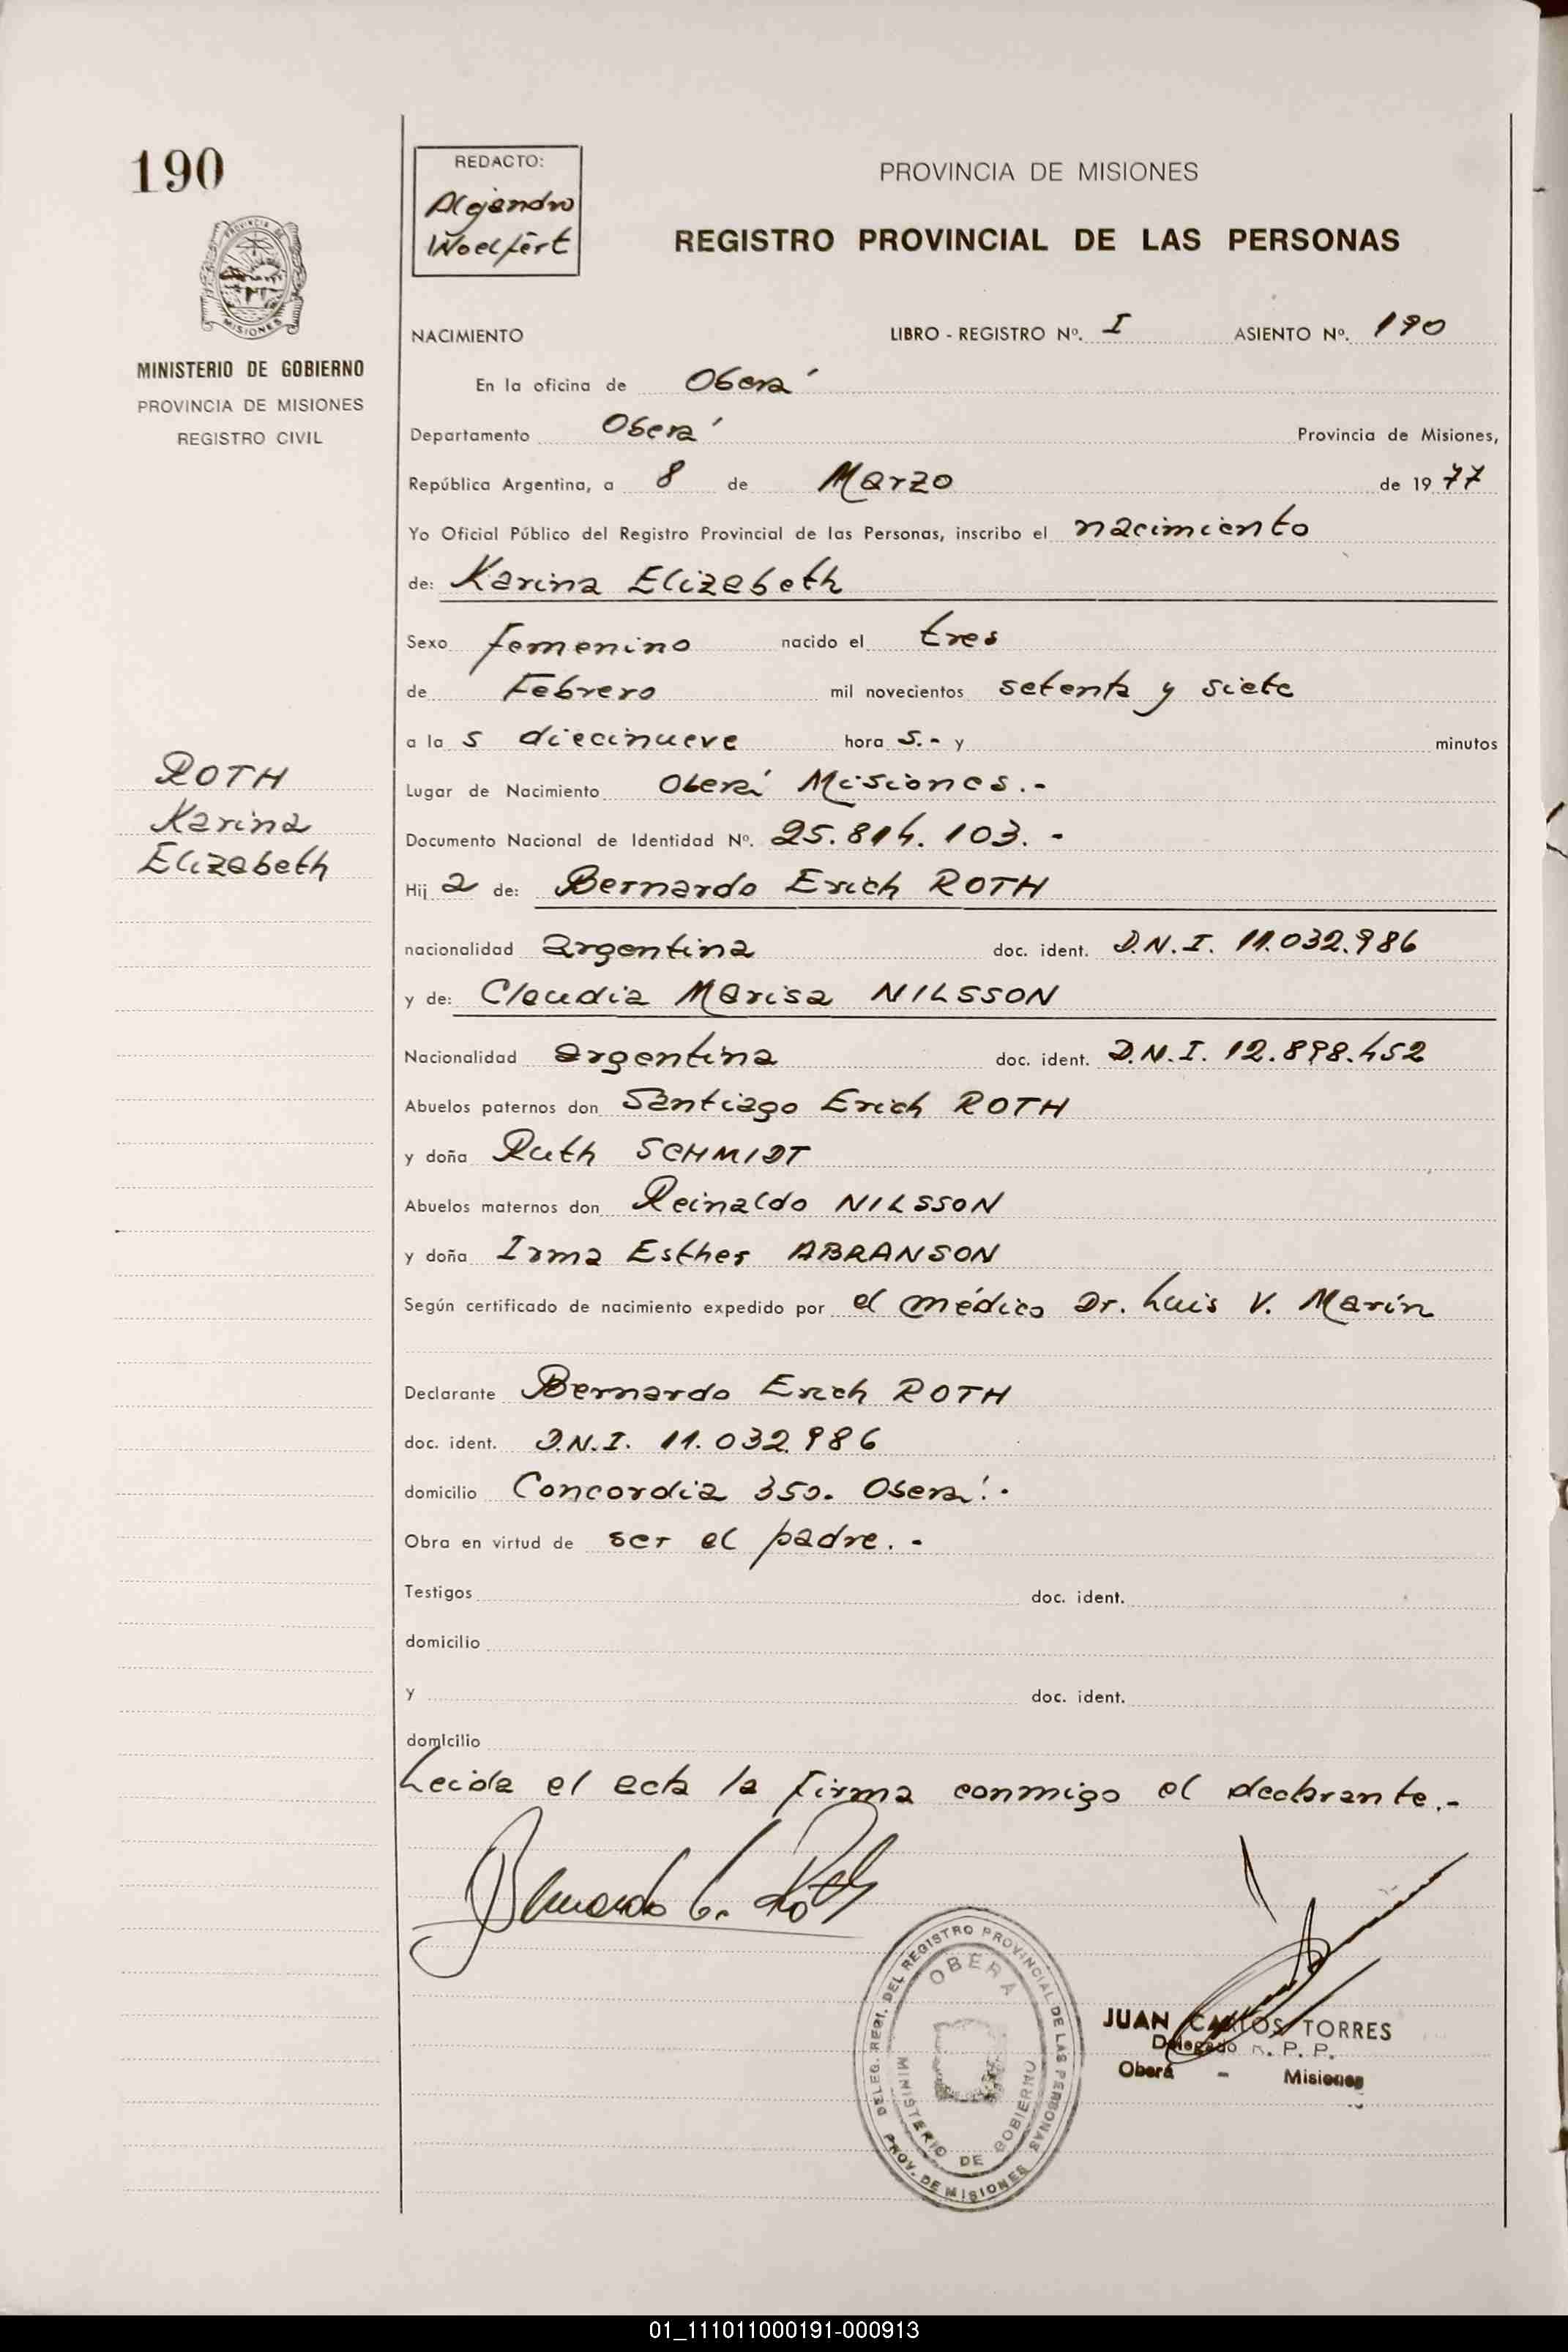 190
PROVINCIA DE MISIONES
MINISTERIO DE GOBIERNO
PROVINCIA DE MISIONES
REGISTRO CIVIL
ROTH
Karina
Elizabeth
REDACTO:
Alejandro
Woelfert
PROVINCIA DE MISIONES
REGISTRO PROVINCIAL DE LAS PERSONAS
NACIMIENTO LIBRO - REGISTRO Nº. I ASIENTO Nº. 190
En la oficina de Oberá
Departamento Oberá Provincia de Misiones,
República Argentina, a 8 de Marzo de 1977
Yo Oficial Público del Registro Provincial de las Personas, inscribo el nacimiento
de: Karina Elizabeth
Sexo femenino nacido el tres
de Febrero mil novecientos setenta y siete
a las diecinueve hora s.- y minutos
Lugar de Nacimiento Oberá Misiones.-
Documento Nacional de Identidad Nº. 25.814.103.-
Hija de: Bernardo Erich ROTH
nacionalidad argentina doc. ident. D.N.I. 11.032.986
y de: Claudia Marisa NILSSON
Nacionalidad argentina doc. ident. D.N.I. 12.898.452
Abuelos paternos don Santiago Erich ROTH
y doña Ruth SCHMIDT
Abuelos maternos don Reinaldo NILSSON
y doña Irma Esther ABRANSON
Según certificado de nacimiento expedido por el médico Dr. Luis V. Marín
Declarante Bernardo Erich ROTH
doc. ident. D.N.I. 11.032.986
domicilio Concordia 350. Oberá.-
Obra en virtud de ser el padre.-
Testigos doc. ident.
domicilio
y doc. ident.
domicilio
Leida el acta la firma conmigo el declarante.-
Bernardo E. Roth
DELEG. REGI. DEL REGISTRO PROVINCIAL DE LAS PERSONAS
OBERÁ
MINISTERIO DE GOBIERNO
PROV. DE MISIONES
JUAN CARLOS TORRES
Delegado R. P. P.
Oberá - Misiones
01_111011000191-000913